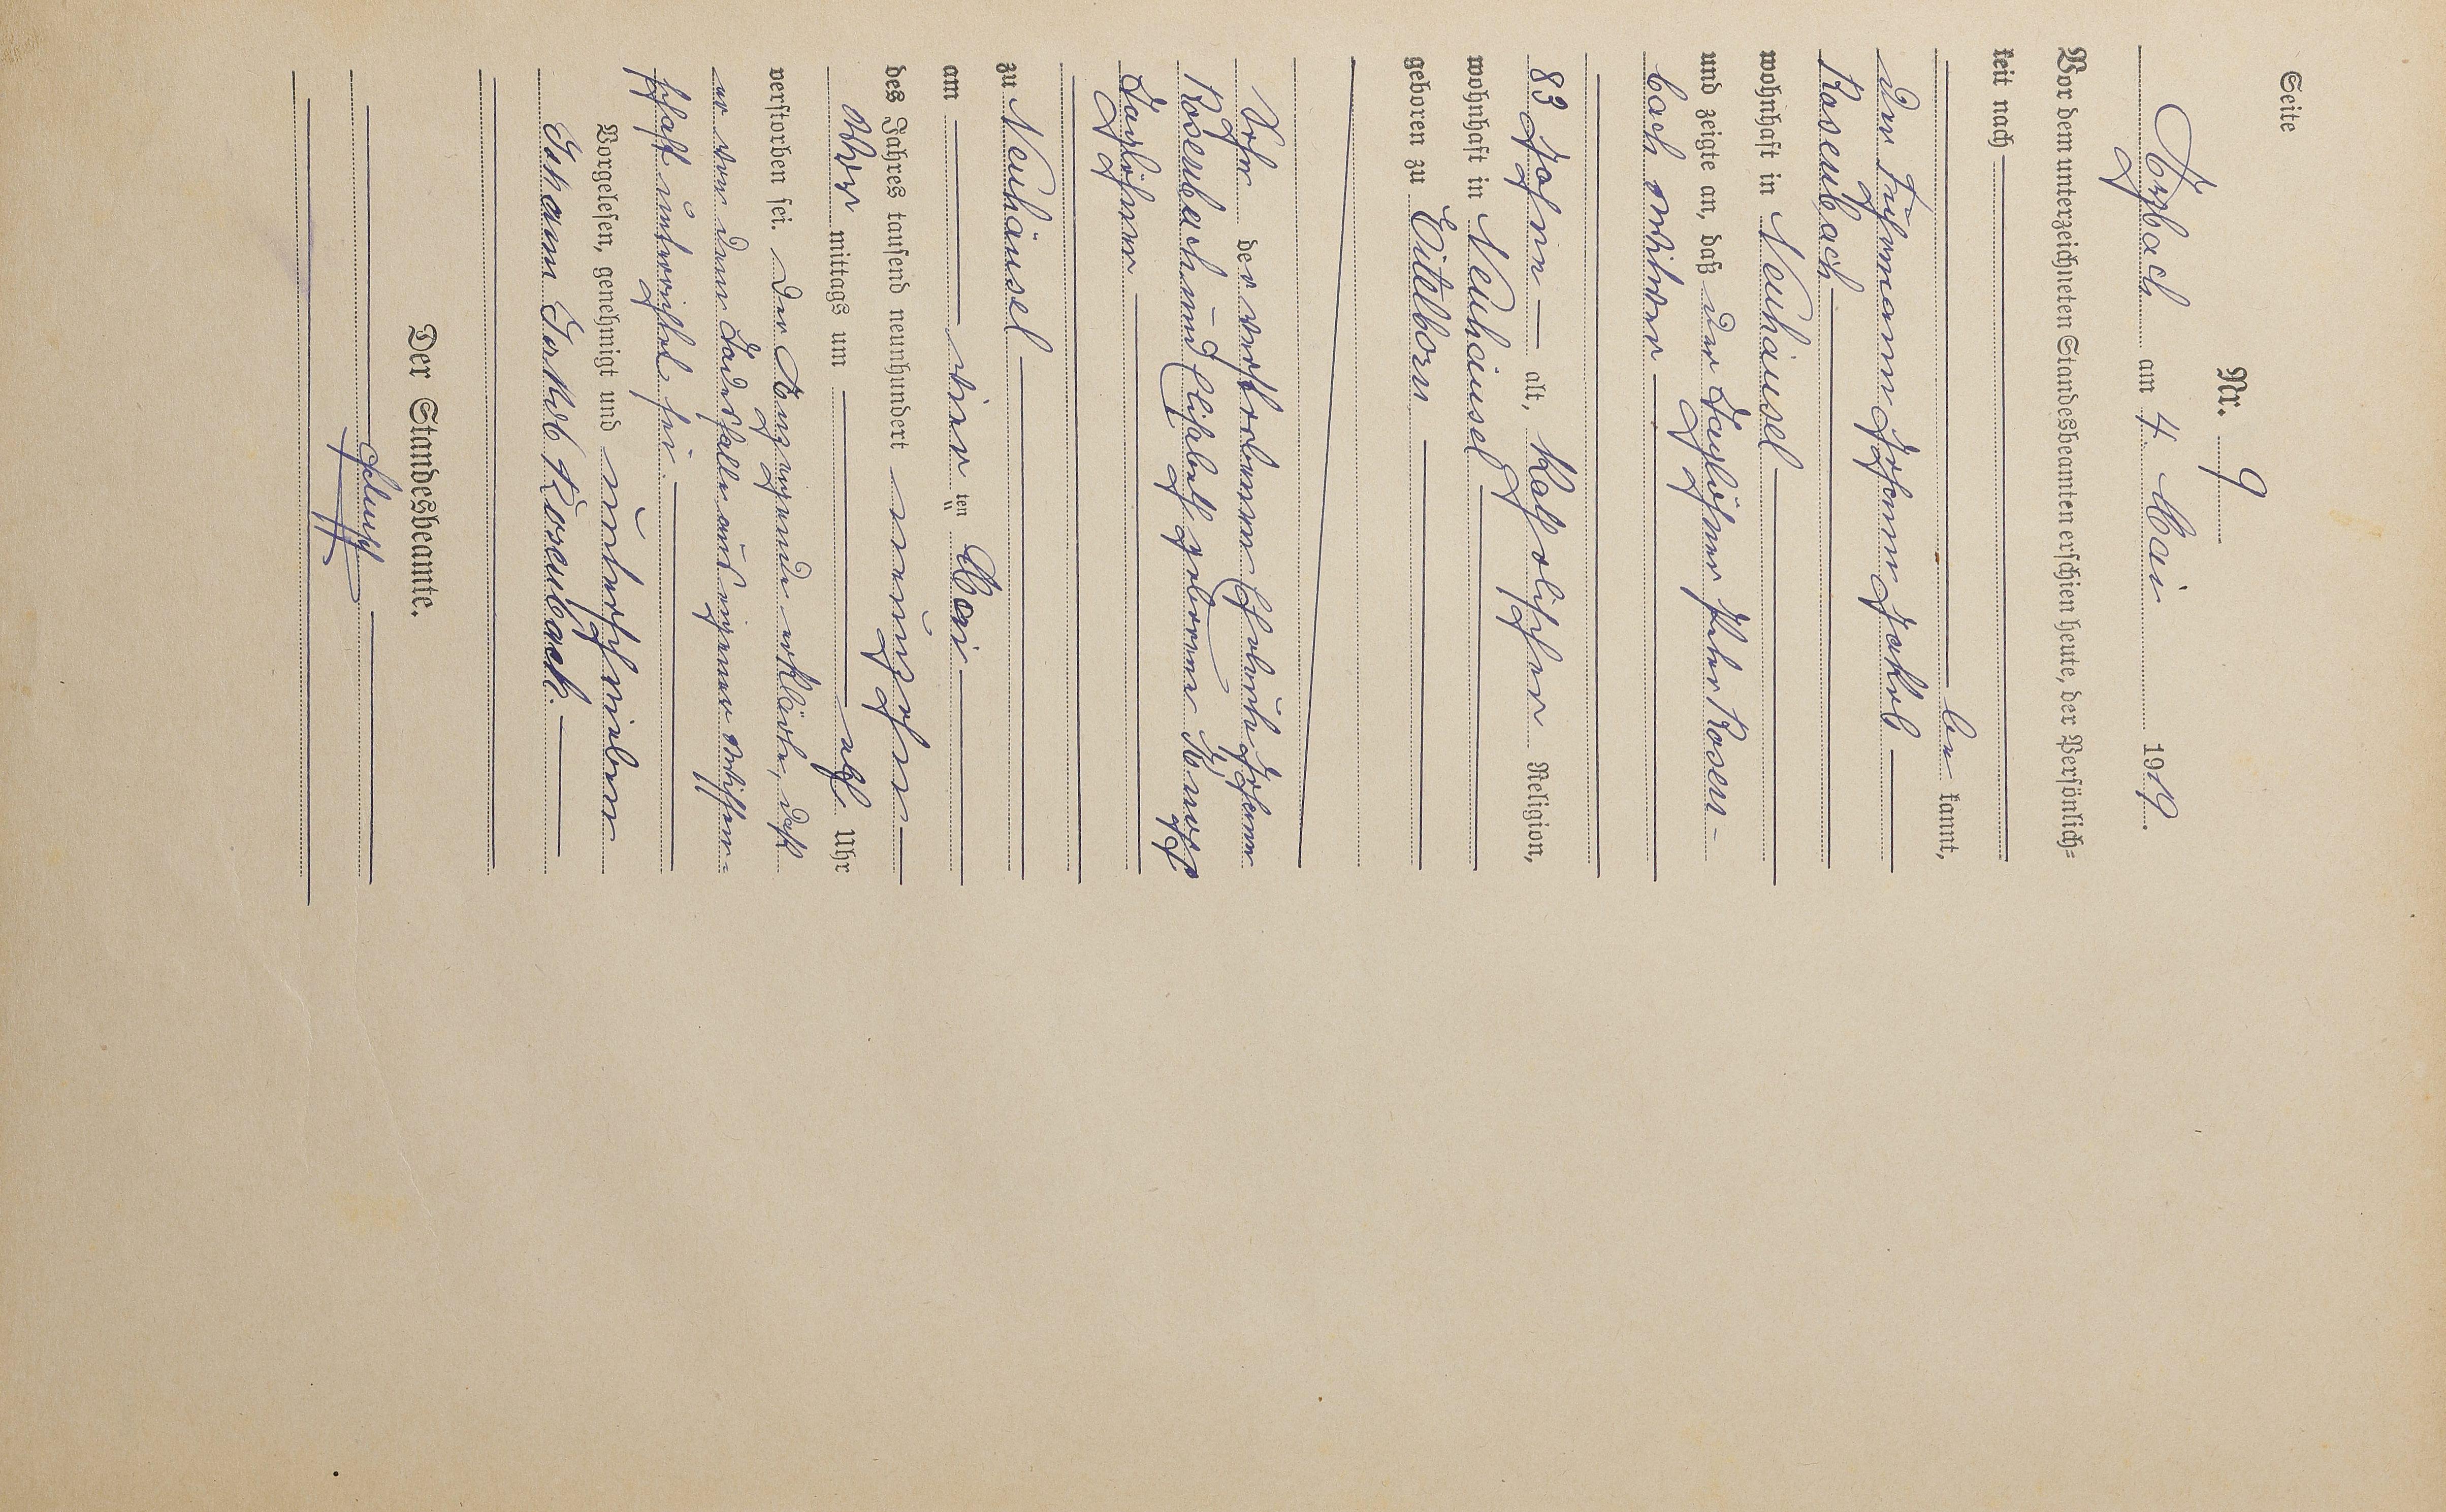 Seite
Nr. 9
Arzbach am 4. Mai 1919.
Vor dem unterzeichneten Standesbeamten erschien heute, der Persönlich=
keit nach
be kannt,
der Fuhrmann Johann Jakob
Rosenbach
wohnhaft in Neuhäusel
und zeigte an, daß der Taglöhner Peter Rosen-
bach Witwer
83 Jahre alt, Katholischer Religion,
wohnhaft in Neuhäusel
geboren zu Eitelborn
Sohn der verstorbenen Eheleute Johann
Rosenbach und Elisabeth geborene
Taglöhner
zu Neuhäusel
am vier ten Mai
des Jahres tausend neunhundert neunzehn
Vor mittags um acht Uhr
verstorben sei. Der Anzeigende erklärte, daß
er von dem Todesfalle aus eigener Wissen-
schaft unterrichtet sei.
Vorgelesen, genehmigt und unterschrieben
Johann Jakob Rosenbach.
Der Standesbeamte.